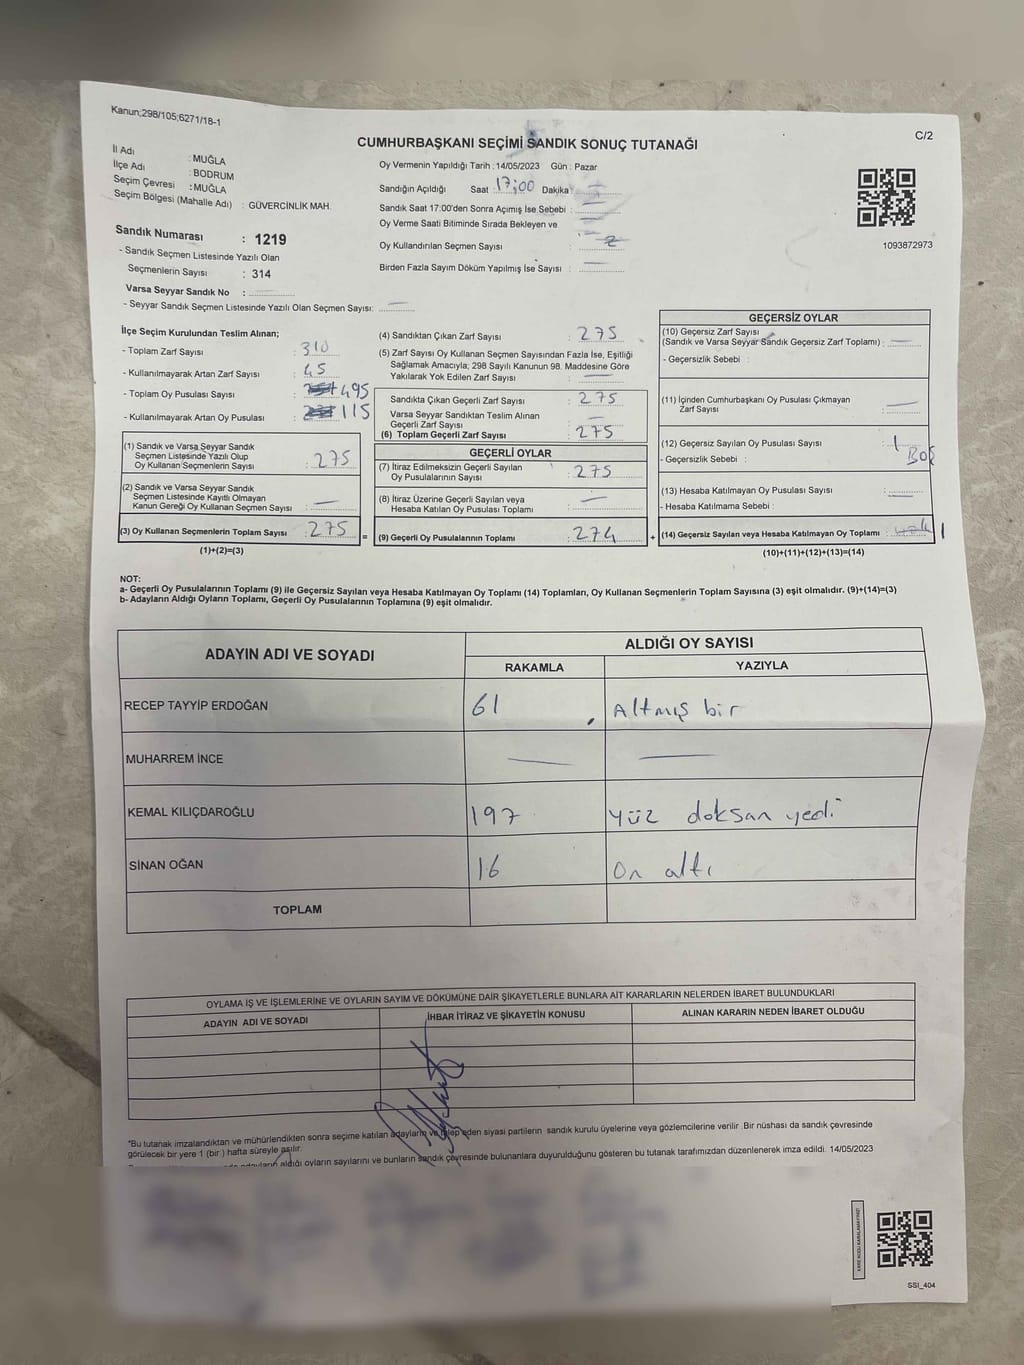 Kanun;298/105;6271/18-1
C/2
CUMHURBAŞKANI SEÇİMİ SANDIK SONUÇ TUTANAĞI
İl Adı : MUĞLA
İlçe Adı : BODRUM
Seçim Çevresi : MUĞLA
Seçim Bölgesi (Mahalle Adı) : GÜVERCİNLİK MAH.
Oy Vermenin Yapıldığı Tarih : 14/05/2023 Gün : Pazar
Sandığın Açıldığı Saat : 17:00 Dakika :
Sandık Saat 17:00'den Sonra Açımış İse Sebebi :
Oy Verme Saati Bitiminde Sırada Bekleyen ve
Oy Kullandırılan Seçmen Sayısı :
Birden Fazla Sayım Döküm Yapılmış İse Sayısı :
1093872973
Sandık Numarası : 1219
- Sandık Seçmen Listesinde Yazılı Olan
Seçmenlerin Sayısı : 314
Varsa Seyyar Sandık No :
- Seyyar Sandık Seçmen Listesinde Yazılı Olan Seçmen Sayısı:
İlçe Seçim Kurulundan Teslim Alınan;
- Toplam Zarf Sayısı : 310
- Kullanılmayarak Artan Zarf Sayısı : 45
- Toplam Oy Pusulası Sayısı : 495
- Kullanılmayarak Artan Oy Pusulası : 115
(1) Sandık ve Varsa Seyyar Sandık
Seçmen Listesinde Yazılı Olup
Oy Kullanan Seçmenlerin Sayısı : 275
(2) Sandık ve Varsa Seyyar Sandık
Seçmen Listesinde Kayıtlı Olmayan
Kanun Gereği Oy Kullanan Seçmen Sayısı :
(3) Oy Kullanan Seçmenlerin Toplam Sayısı : 275 =
(1)+(2)=(3)
(4) Sandıktan Çıkan Zarf Sayısı : 275
(5) Zarf Sayısı Oy Kullanan Seçmen Sayısından Fazla İse, Eşitliği
Sağlamak Amacıyla; 298 Sayılı Kanunun 98. Maddesine Göre
Yakılarak Yok Edilen Zarf Sayısı :
Sandıkta Çıkan Geçerli Zarf Sayısı : 275
Varsa Seyyar Sandıktan Teslim Alınan
Geçerli Zarf Sayısı :
(6) Toplam Geçerli Zarf Sayısı : 275
GEÇERLİ OYLAR
(7) İtiraz Edilmeksizin Geçerli Sayılan
Oy Pusulalarının Sayısı : 275
(8) İtiraz Üzerine Geçerli Sayılan veya
Hesaba Katılan Oy Pusulası Toplamı :
(9) Geçerli Oy Pusulalarının Toplamı : 274 +
GEÇERSİZ OYLAR
(10) Geçersiz Zarf Sayısı
(Sandık ve Varsa Seyyar Sandık Geçersiz Zarf Toplamı) :
- Geçersizlik Sebebi :
(11) İçinden Cumhurbaşkanı Oy Pusulası Çıkmayan
Zarf Sayısı :
(12) Geçersiz Sayılan Oy Pusulası Sayısı : 1
- Geçersizlik Sebebi : Boş
(13) Hesaba Katılmayan Oy Pusulası Sayısı :
- Hesaba Katılmama Sebebi :
(14) Geçersiz Sayılan veya Hesaba Katılmayan Oy Toplamı : 1
(10)+(11)+(12)+(13)=(14)
NOT:
a- Geçerli Oy Pusulalarının Toplamı (9) ile Geçersiz Sayılan veya Hesaba Katılmayan Oy Toplamı (14) Toplamları, Oy Kullanan Seçmenlerin Toplam Sayısına (3) eşit olmalıdır. (9)+(14)=(3)
b- Adayların Aldığı Oyların Toplamı, Geçerli Oy Pusulalarının Toplamına (9) eşit olmalıdır.
ADAYIN ADI VE SOYADI
ALDIĞI OY SAYISI
RAKAMLA YAZIYLA
RECEP TAYYİP ERDOĞAN 61 Altmış bir
MUHARREM İNCE
KEMAL KILIÇDAROĞLU 197 yüz doksan yedi
SİNAN OĞAN 16 On altı
TOPLAM
OYLAMA İŞ VE İŞLEMLERİNE VE OYLARIN SAYIM VE DÖKÜMÜNE DAİR ŞİKAYETLERLE BUNLARA AİT KARARLARIN NELERDEN İBARET BULUNDUKLARI
ADAYIN ADI VE SOYADI İHBAR İTİRAZ VE ŞİKAYETİN KONUSU ALINAN KARARIN NEDEN İBARET OLDUĞU
*Bu tutanak imzalandıktan ve mühürlendikten sonra seçime katılan adayların ve talep eden siyasi partilerin sandık kurulu üyelerine veya gözlemcilerine verilir .Bir nüshası da sandık çevresinde
görülecek bir yere 1 (bir ) hafta süreyle asılır.
aldığı oyların sayılarını ve bunların sandık çevresinde bulunanlara duyurulduğunu gösteren bu tutanak tarafımızdan düzenlenerek imza edildi. 14/05/2023
SSI_404